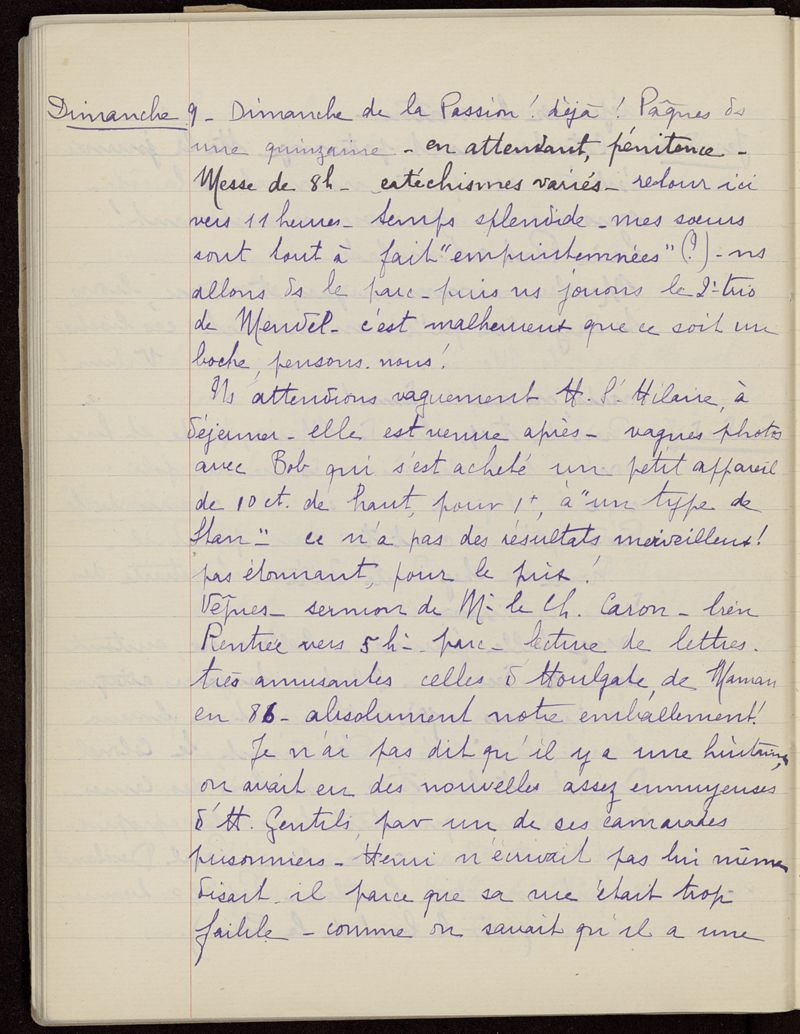 Dimanche 9 - Dimanche de la Passion! déjà! Pâques ds
une quinzaine - en attendant, pénitence -
Messe de 8h - catéchismes variés - retour ici
vers 11 heures - temps splendide - mes sœurs
sont tout à fait "emprintemnées" (?) - ns
allons ds le parc - puis ns jouons le 2e trio
de Mendel - c'est malheureux que ce soit un
boche, pensons-nous!
Ns attendions vaguement H. St Hilaire, à
déjeuner - elle est venue après - vagues photos
avec Bob qui s'est acheté un petit appareil
de 10 ct. de haut, pour 1f, à "un type de
Stan" - ce n'a pas des résultats merveilleux!
pas étonnant, pour le prix!
Vêpres - sermon de Mr le Ch. Caron - bien
Rentrée vers 5h - parc - lecture de lettres -
très amusantes celles d'Houlgate, de Maman
en 86 - absolument notre emballement!
Je n'ai pas dit qu'il y a une huitaine,
on avait eu des nouvelles assez ennuyeuses
d'H. Gentils, par un de ses camarades
prisonniers - Henri n'écrivait pas lui même
disait-il parce que sa vue était trop
faible - comme on savait qu'il a une